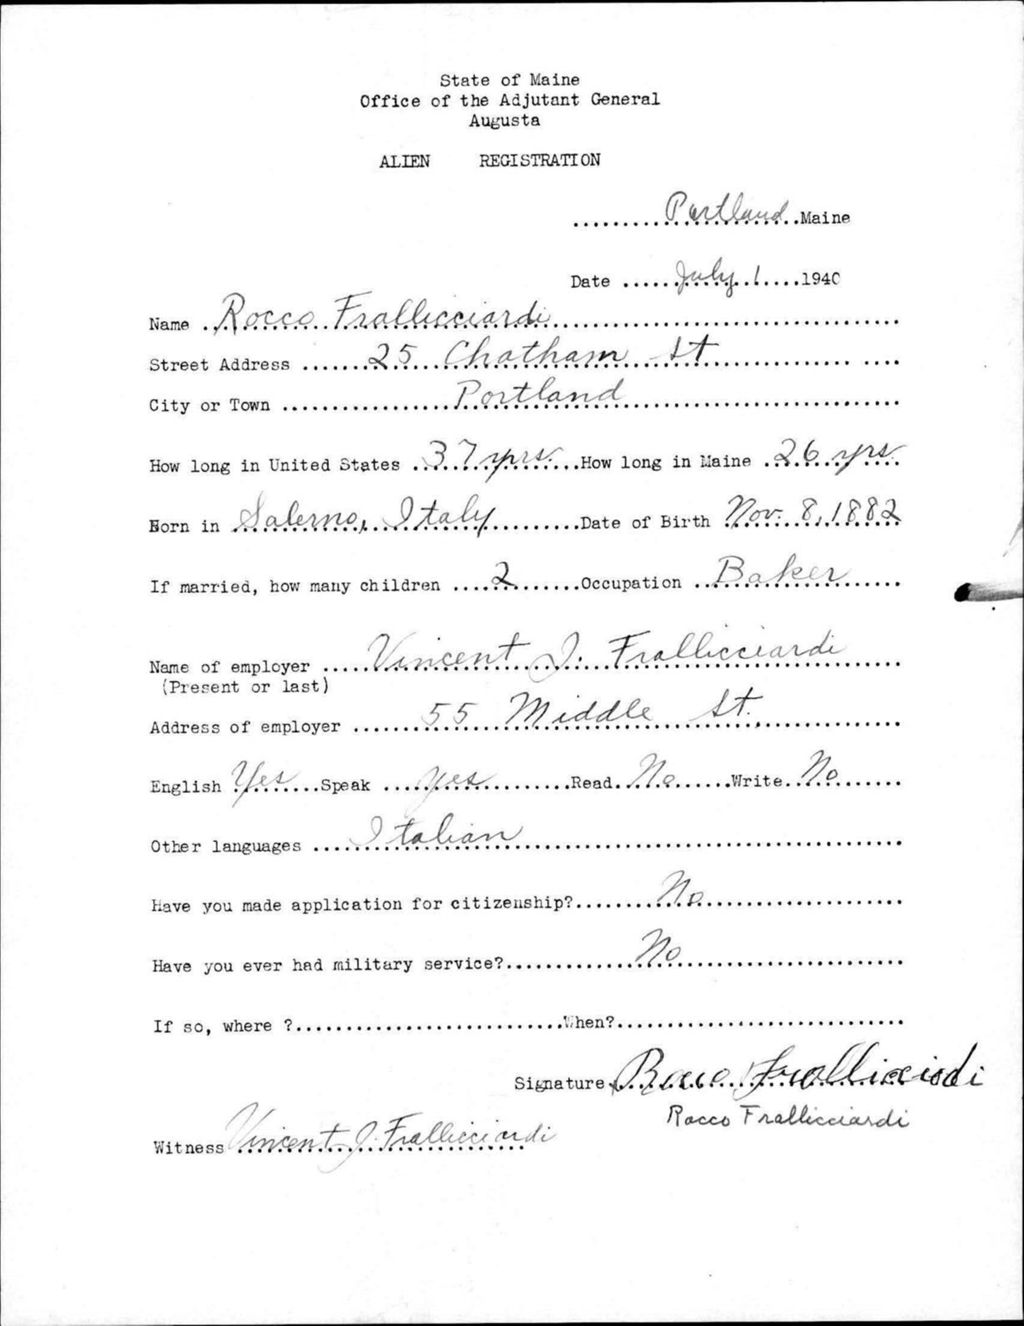 State of Maine
Office of the Adjutant General
Augusta
ALIEN REGISTRATION
.........Portland..Maine
Date ......July 1....1940
Name ..Rocco Frallicciardi..............................
Street Address .......25 Chatham St....................
City or Town .................Portland..........................
How long in United States ..37 yrs....How long in Maine ..26 yrs.
Born in ..Salerno, Italy..........Date of Birth ..Nov. 8, 1882
If married, how many children ....2.......Occupation ..Baker......
Name of employer .....Vincent J. Frallicciardi.......
(Present or last)
Address of employer .......55 Middle St...............
English Yes.....Speak ....Yes.........Read..No......Write..No.......
Other languages ....Italian......................................
Have you made application for citizenship?........No....................
Have you ever had military service?.............No......................
If so, where ?...........................When?.............................
Signature..Rocco Frallicciardi
Rocco Frallicciardi
Witness Vincent J. Frallicciardi